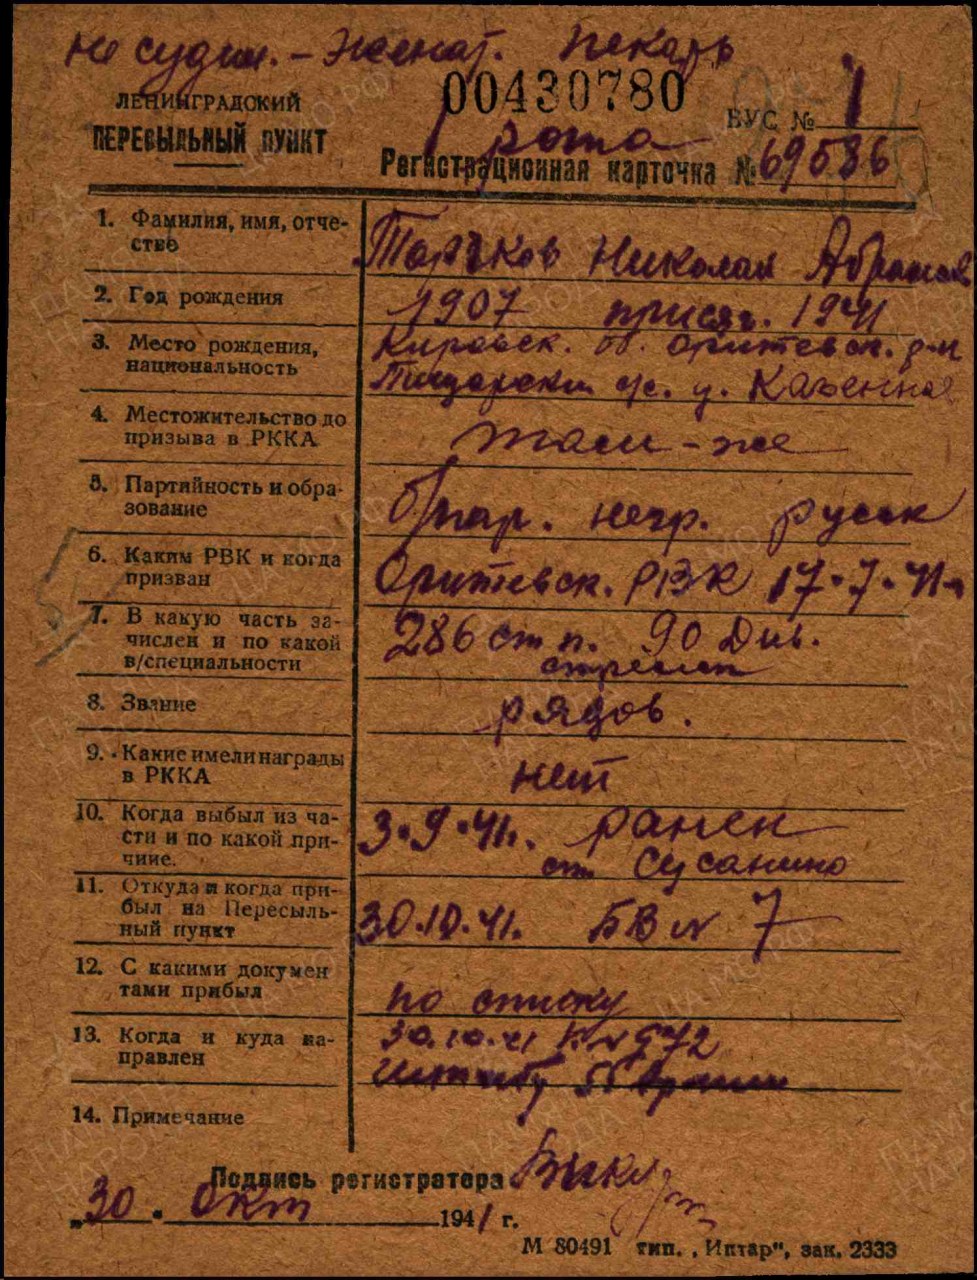 не судим. - Женат. Пекарь
00430780
ЛЕНИНГРАДСКИЙ
ПЕРЕСЫЛЬНЫЙ ПУНКТ
ВУС № 1
рота
Регистрационная карточка № 69586
1. Фамилия, имя, отче-
ство
Николай Абрамов
2. Год рождения
1907 присяг. 1941
3. Место рождения,
национальность
Кировск. об. Оричевск. р-н
с/с. д.
4. Местожительство до
призыва в РККА
там-же
5. Партийность и обра-
зование
б/пар. негр. русск
6. Каким РВК и когда
призван
Оричевск. РВК 17-7-41г
7. В какую часть за-
числен и по какой
в/специальности
286 стп. 90 Див.
стрелк
8. Звание
рядов.
9. Какие имели награды
в РККА
нет
10. Когда выбыл из ча-
сти и по какой при-
чине.
3.9.41г. ранен
ст Сусанино
11. Откуда и когда при-
был на Пересыль-
ный пункт
30.10.41. БВ № 7
12. С какими докумен
тами прибыл
по списку
13. Когда и куда на-
правлен
30.10.41
14. Примечание
Подпись регистратора
„30. окт 1941 г.
М 80491 тип. „Интар", зак. 2333
ПАМЯТЬ НАРОДА
ЦАМО.РФ